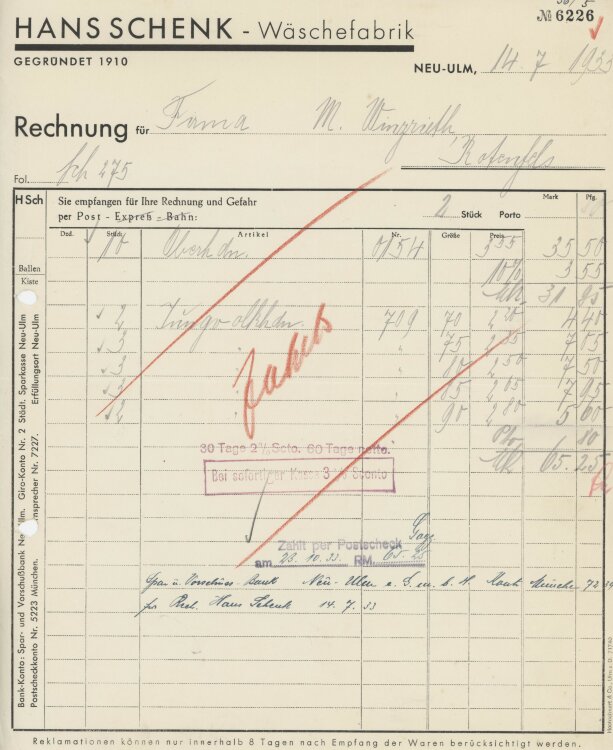 № 6226
HANS SCHENK - Wäschefabrik
GEGRÜNDET 1910
NEU-ULM, 14. 7 1933
Rechnung für Firma M.
Rotenfels
Fol. 275
HSch
Sie empfangen für Ihre Rechnung und Gefahr
per Post - Expreß - Bahn:
2 Stück Porto
Mark Pfg.
Ballen
Kiste
Dtzd. Stück Artikel Nr. Größe Preis
10 Oberhdn. 0154 3 55 35 50
10% 3 55
Mk. 31 95
2 709 70 2 20 4 40
3 " 75 2 35 7 05
3 " 80 2 50 7 50
3 " 85 2 65 7 95
2 " 90 2 80 5 60
Pto. 80
Mk 65.25
30 Tage 2% Scto. 60 Tage netto.
Bei sofortiger Kasse 3% Sconto
Zahlt per Postscheck
am 23. 10. 33 RM. 65.25
Spar u. Vorschuss-Bank Neu-Ulm e. G. m. b. H. Konto München
für Rech. Hans Schenk 14. 7. 33
Bank-Konto: Spar- und Vorschußbank Neu-Ulm. Giro-Konto Nr. 2 Städt. Sparkasse Neu-Ulm
Postscheckkonto Nr. 5223 München. Fernsprecher Nr. 7227. Erfüllungsort Neu-Ulm
Reklamationen können nur innerhalb 8 Tagen nach Empfang der Waren berücksichtigt werden.